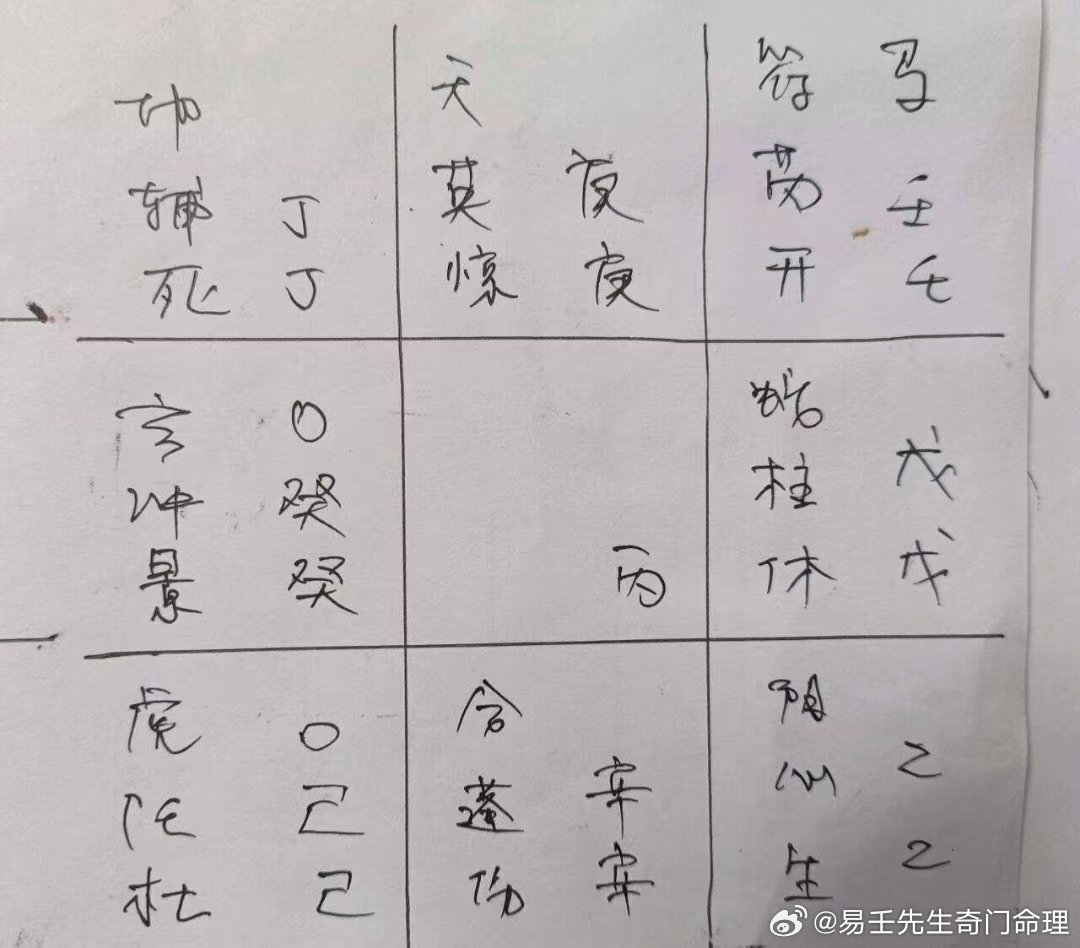 地
辅 丁
死 丁
天
英 庚
惊 庚
符 马
芮 壬
开 壬
玄 O
冲 癸
景 癸
丙
蛇
柱 戊
休 戊
虎 O
任 己
杜 己
合
蓬 辛
伤 辛
阴
心 乙
生 乙
@易壬先生奇门命理